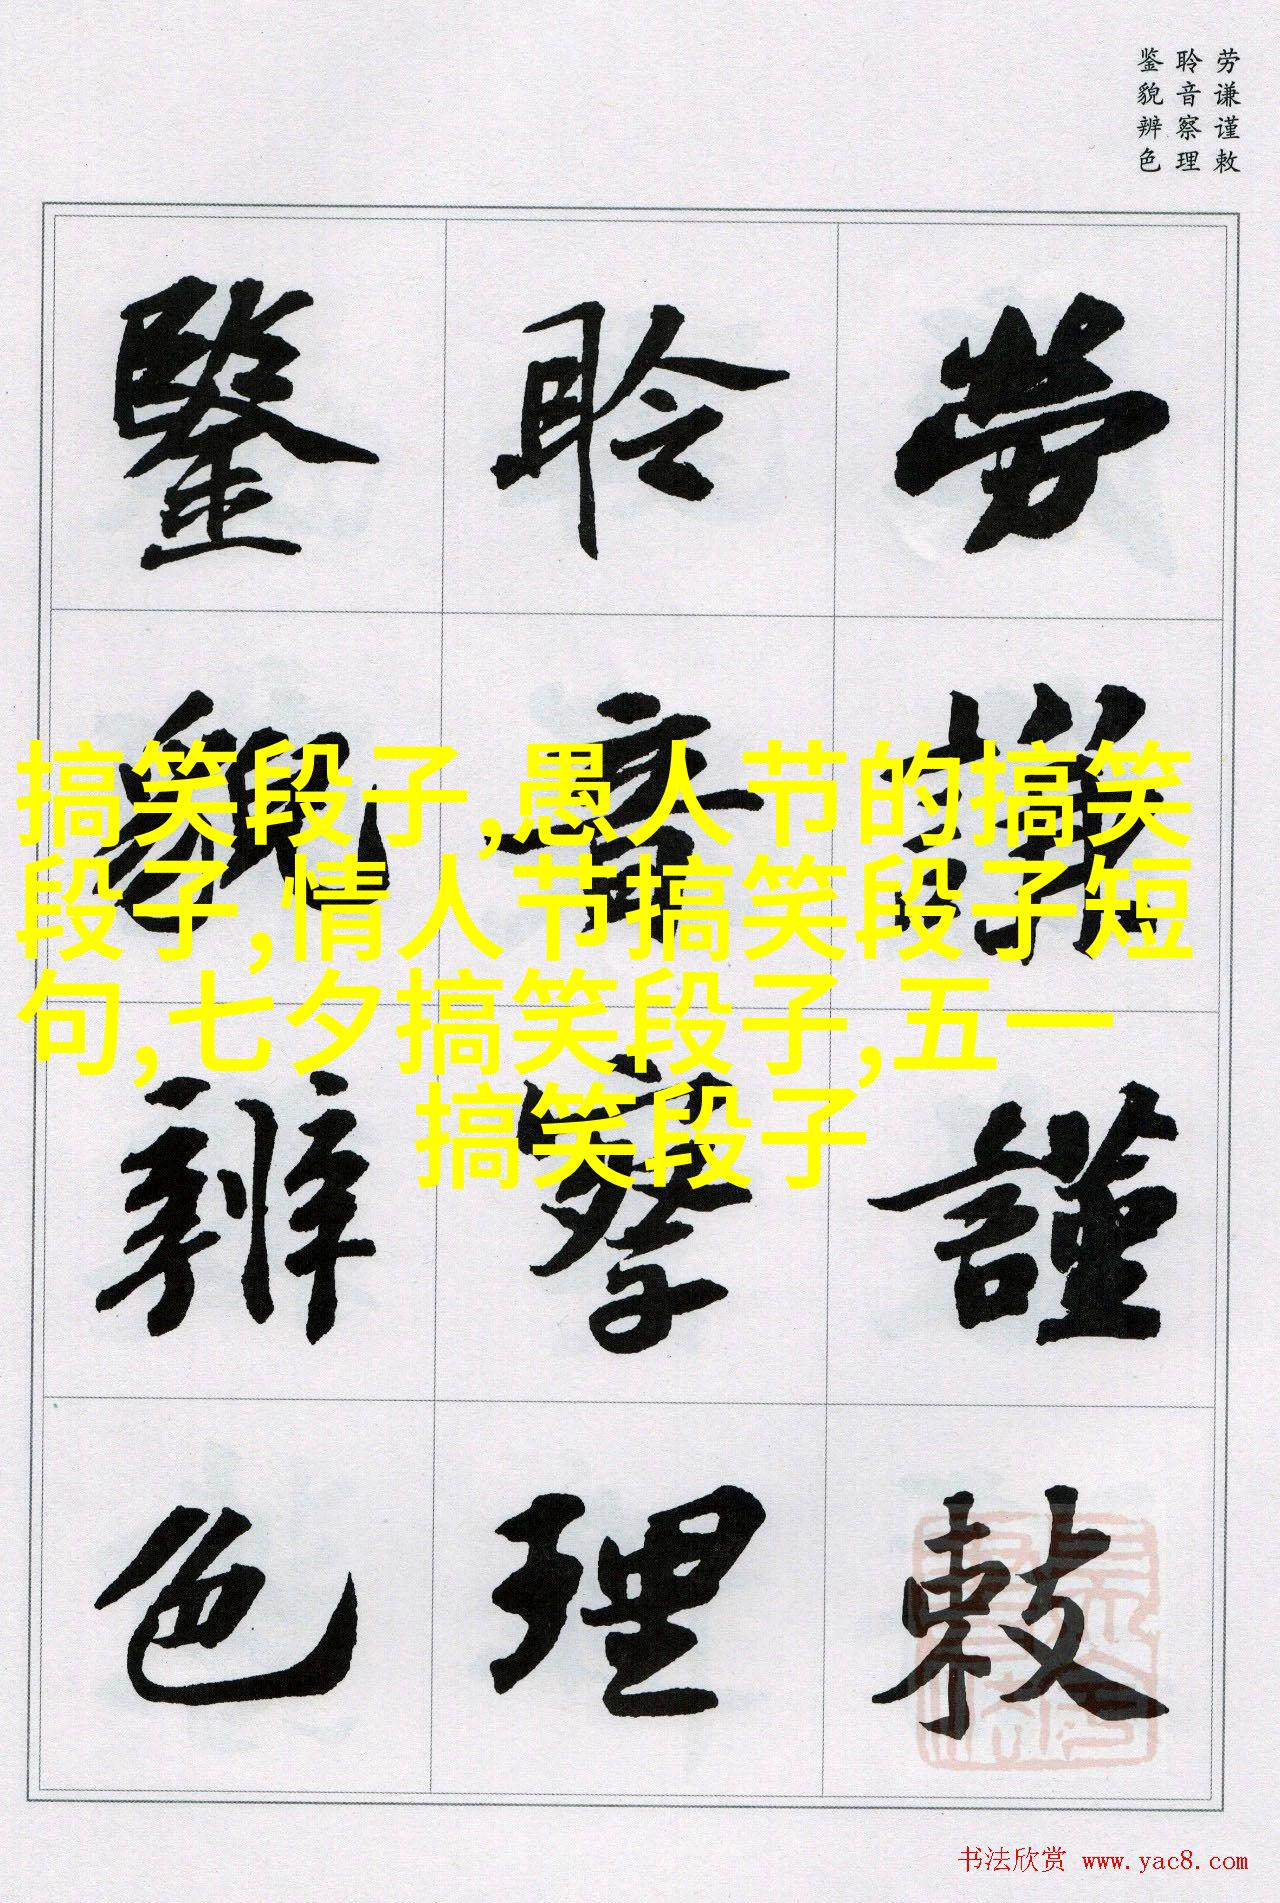 劳谦谨敕
聆音察理
鉴貌辨色
勞謙謹敕
聆音察理
鑒貌辨色
搞笑段子,愚人节的搞笑
段子,情人节搞笑段子短
句,七夕搞笑段子,五一
搞笑段子
书法欣赏 www.yac8.com